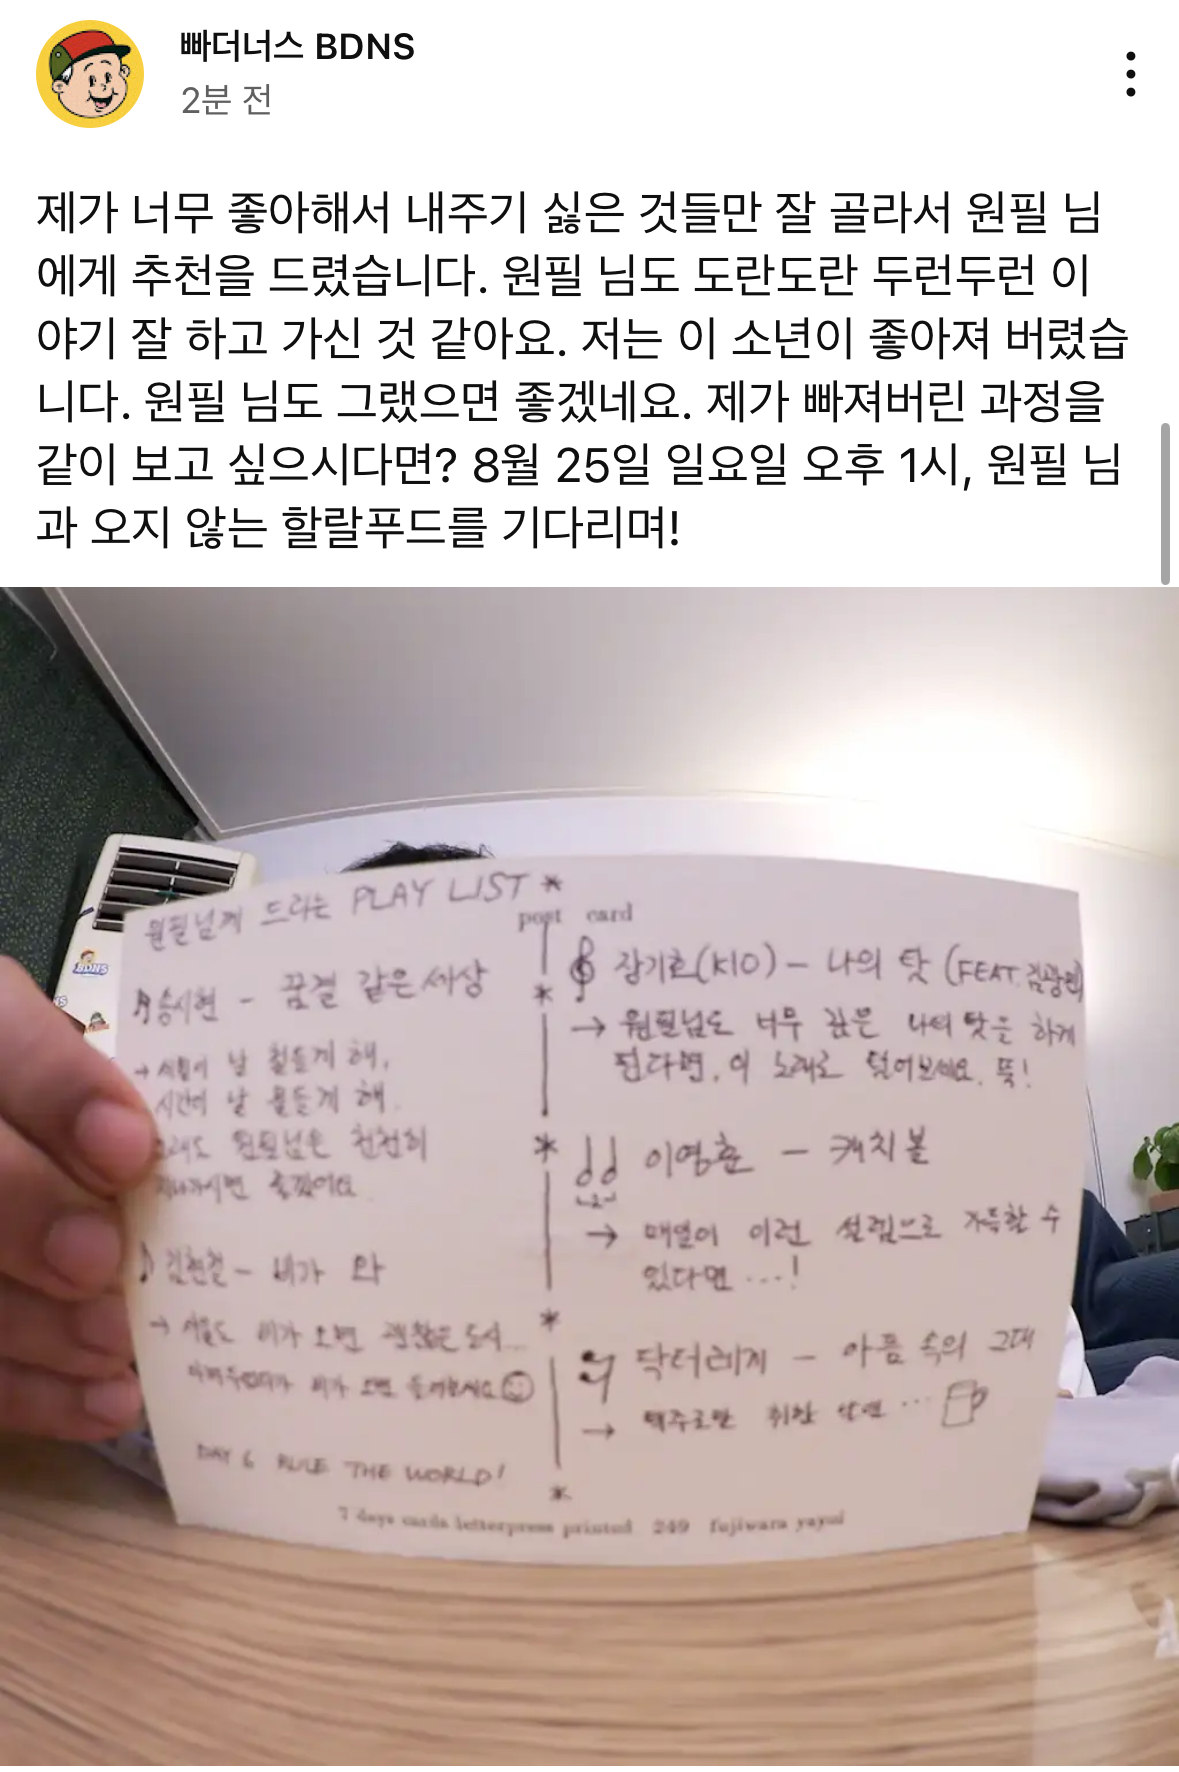 빠더너스 BDNS
2분 전
제가 너무 좋아해서 내주기 싫은 것들만 잘 골라서 원필 님
에게 추천을 드렸습니다. 원필 님도 도란도란 두런두런 이
야기 잘 하고 가신 것 같아요. 저는 이 소년이 좋아져 버렸습
니다. 원필 님도 그랬으면 좋겠네요. 제가 빠져버린 과정을
같이 보고 싶으시다면? 8월 25일 일요일 오후 1시, 원필 님
과 오지 않는 할랄푸드를 기다리며!
원필님께 드리는 PLAY LIST *
post card
송시현 - 꿈결 같은 세상
→ 사람이 날 힘들게 해,
시간이 날 힘들게 해.
그래도 원필님은 천천히
지나가시면 좋겠어요
김현철 - 비가 와
→ 서울도 비가 오면 괜찮은 도시...
비가 오면 들어보세요
DAY 6 RULE THE WORLD!
장기호(KIO) - 나의 탓 (FEAT. 김광민)
→ 원필님도 너무 깊은 나의 탓을 하게
된다면, 이 노래로 덜어보세요. 뚝!
이영훈 - 캐치볼
→ 매일이 이런 설렘으로 가득할 수
있다면 ...!
닥터레게 - 아픔 속의 그대
→ 맥주로만 취한 밤엔 ...
7 days cards letterpress printed 249 fujiwara yayoi
BDNS